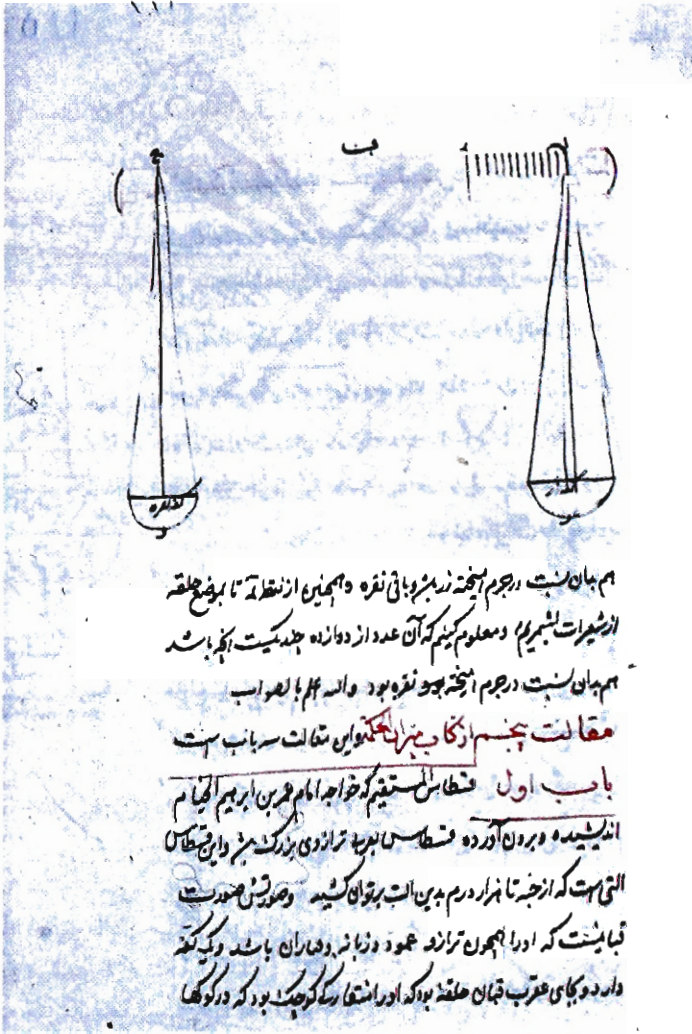 هم بدان نسبت در جرم آمیخته زر بیش و باقی نقره و همچنین از نقطه تا بموضع حلقه
از شعیرات بشمریم و معلوم کنیم که آن عدد از دوازده چند یکیست آنچه باشد
هم بدان نسبت در جرم آمیخته بود نقره بود والله اعلم بالصواب
مقالت پنجم از کتاب میزان الحکمة و این مقالت سه بابست
باب اول قسطاس المستقیم که خواجه امام عمر بن ابرهیم الخیام
اندیشیده و برون آورده قسطاس بعربی ترازوی بزرگ و این قسطاس
آلتی است که از حبه تا هزار درم بدین آلت برتوان کشید و صورتش صورت
قبانیست که او را همچون ترازو عمود و زبانه باشد و یک کفه
دارد و بجای عقرب قبان حلقه بود که او را منقار کوچک بود که در